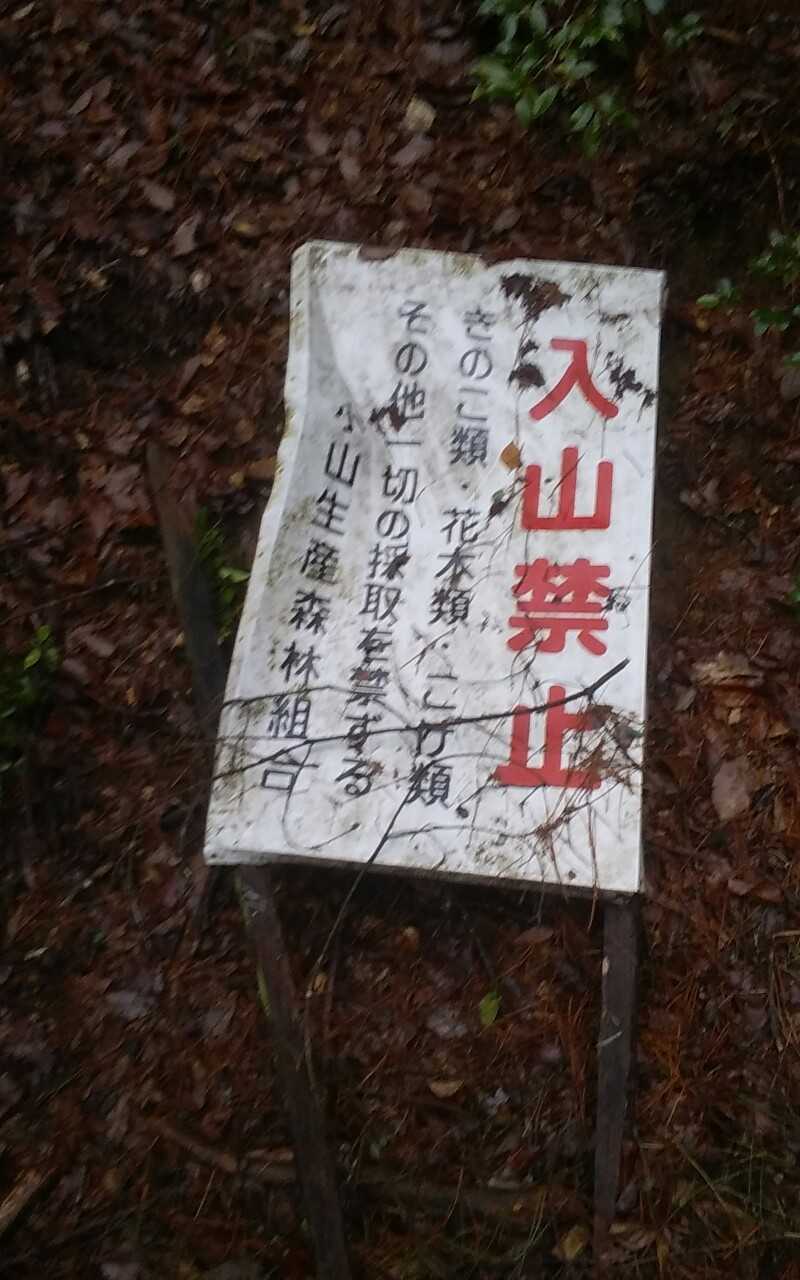 入山禁止
きのこ類・花木類・こけ類、
その他一切の採取を禁ずる
山生産森林組合